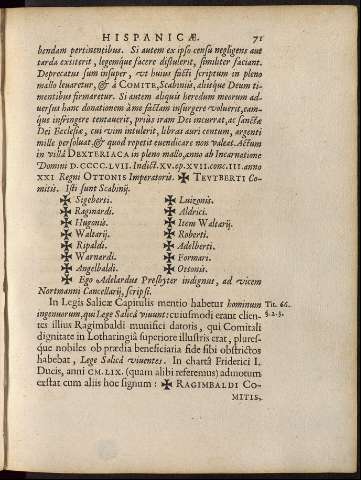 HISPANICÆ. 71
bendam pertinentibus. Si autem ex ipso censu negligens aut
tarda exsiterit, legemque facere distulerit, similiter faciant.
Deprecatus sum insuper, vt huius facti scriptum in pleno
mallo leuaretur, & à COMITE, Scabiniis, aliisque Deum ti-
mentibus firmaretur. Si autem aliquis heredum meorum ad-
versus hanc donationem à me factam insurgere voluerit, eam-
que infringere tentauerit, priùs iram Dei incurrat, ac sanctæ
Dei Ecclesiæ, cui vim intulerit, libras auri centum, argenti
mille persoluat, & quod repetit euendicare non valeat. Actum
in villâ DEXTERIACA in pleno mallo, anno ab Incarnatione
Domini D.CCCC.LVII. Indict. XV. ep. XVII. conc. III. anno
XXI Regni OTTONIS Imperatoris. ✠ TEVTBERTI Co-
mitis. Isti sunt Scabinij.
✠ Sigeberti. ✠ Luizonis.
✠ Raginardi. ✠ Aldrici.
✠ Hugonis. ✠ Item Waltarij.
✠ Waltarij. ✠ Roberti.
✠ Ripaldi. ✠ Adelberti.
✠ Warnerdi. ✠ Formari.
✠ Angelbaldi. ✠ Ottonis.
✠ Ego Adelardus Presbyter indignus, ad vicem
Nortmanni Cancellarij, scripsi.
In Legis Salicæ Capitulis mentio habetur hominum Tit. 66.
ingenuorum, qui Lege Salicâ viuunt: cuiusmodi erant clien- §.2.5.
tes illius Ragimbaldi munifici datoris, qui Comitali
dignitate in Lotharingiâ superiore illustris erat, plures-
que nobiles ob prædia beneficiaria fide sibi obstrictos
habebat, Lege Salicâ viuentes. In chartâ Friderici I.
Ducis, anni CM.LIX. (quam alibi referemus) adnotum
exstat cum aliis hoc signum: ✠ RAGIMBALDI CO-
MITIS,